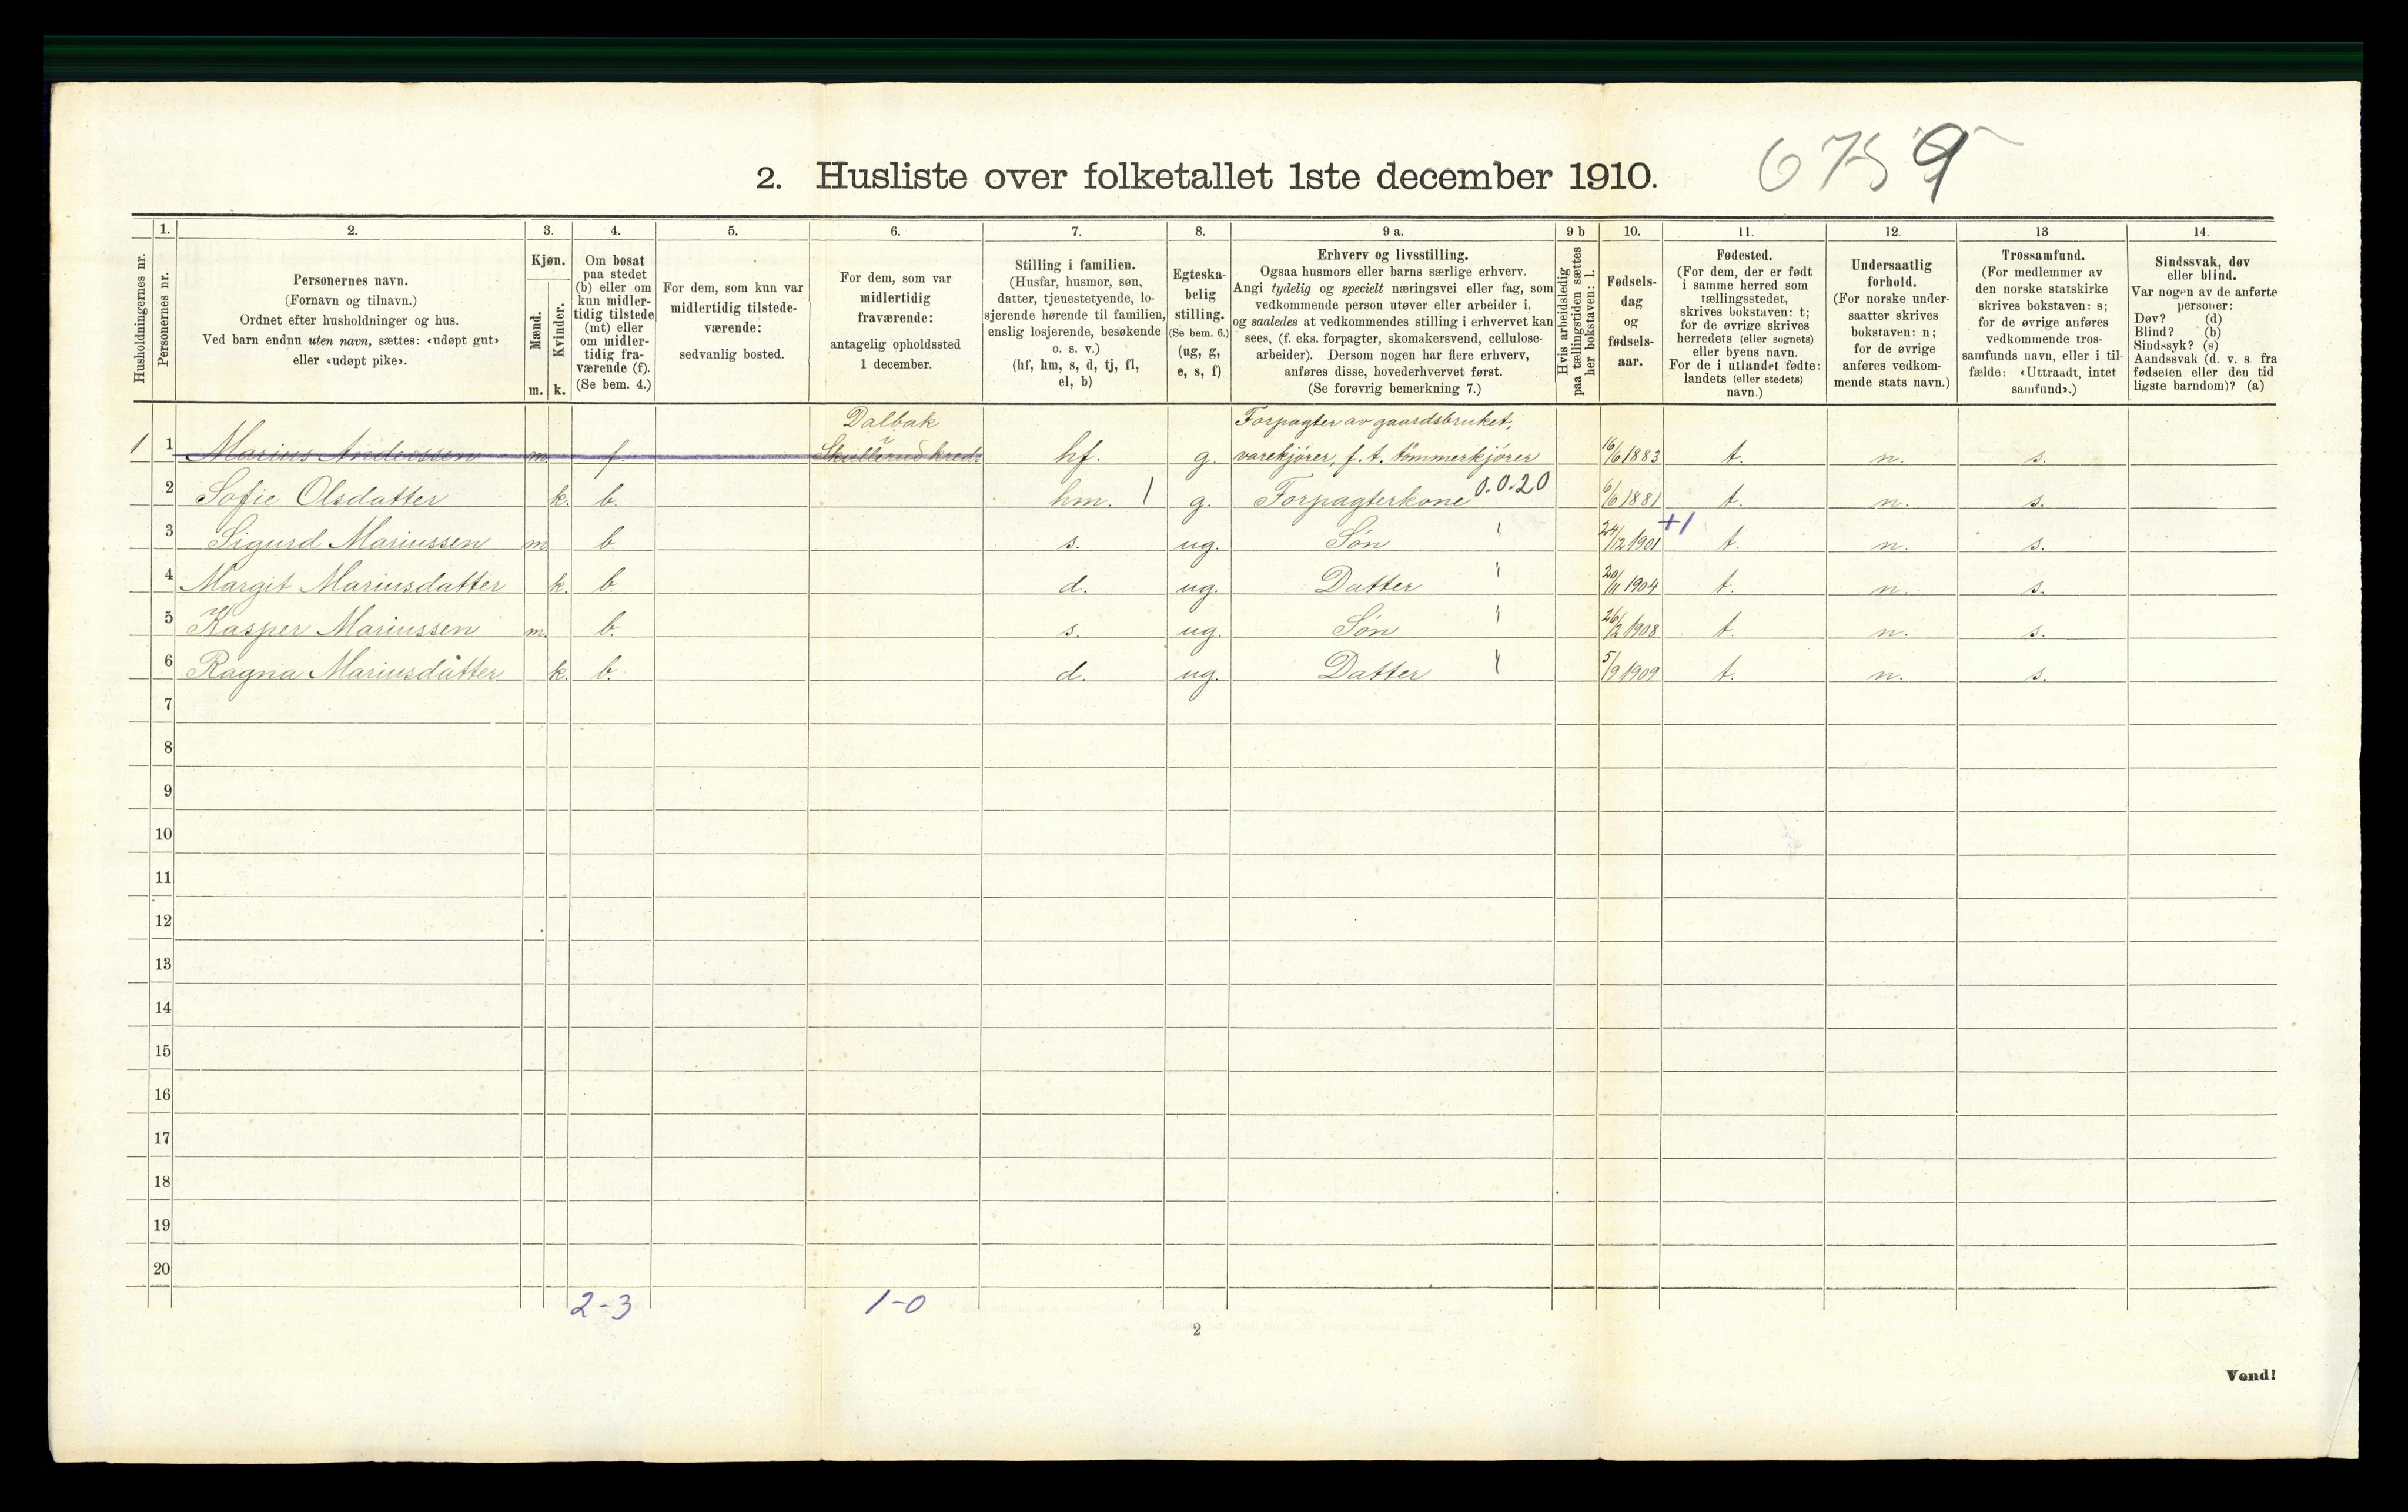 2. Husliste over folketallet 1ste december 1910.
1. 2. 3. 4. 5. 6. 7. 8. 9 a. 9 b 10. 11. 12. 13 14.
Husholdningernes nr.
Personernes nr.
Personernes navn.
(Fornavn og tilnavn.)
Ordnet efter husholdninger og hus.
Ved barn endnu uten navn, sættes: «udøpt gut»
eller «udøpt pike».
Kjøn.
Mænd.
Kvinder.
m. k.
Om bosat
paa stedet
(b) eller om
kun midler-
tidig tilstede
(mt) eller
om midler-
tidig fra-
værende (f).
(Se bem. 4.)
For dem, som kun var
midlertidig tilstede-
værende:
sedvanlig bosted.
For dem, som var
midlertidig
fraværende:
antagelig opholdssted
1 december.
Stilling i familien.
(Husfar, husmor, søn,
datter, tjenestetyende, lo-
sjerende hørende til familien,
enslig losjerende, besøkende
o. s. v.)
(hf, hm, s, d, tj, fl,
el, b)
Egteska-
belig
stilling.
(Se bem. 6.)
(ug, g,
e, s, f)
Erhverv og livsstilling.
Ogsaa husmors eller barns særlige erhverv.
Angi tydelig og specielt næringsvei eller fag, som
vedkommende person utøver eller arbeider i,
og saaledes at vedkommendes stilling i erhvervet kan
sees, (f. eks. forpagter, skomakersvend, cellulose-
arbeider). Dersom nogen har flere erhverv,
anføres disse, hovederhvervet først.
(Se forøvrig bemerkning 7.)
Hvis arbeidsledig
paa tællingstiden sættes
her bokstaven: l.
Fødsels-
dag
og
fødsels-
aar.
Fødested.
(For dem, der er født
i samme herred som
tællingsstedet,
skrives bokstaven: t;
for de øvrige skrives
herredets (eller sognets)
eller byens navn.
For de i utlandet fødte:
landets (eller stedets)
navn.)
Undersaatlig
forhold.
(For norske under-
saatter skrives
bokstaven: n;
for de øvrige
anføres vedkom-
mende stats navn.)
Trossamfund.
(For medlemmer av
den norske statskirke
skrives bokstaven: s;
for de øvrige anføres
vedkommende tros-
samfunds navn, eller i til-
fælde: «Uttraadt, intet
samfund».)
Sindssvak, døv
eller blind.
Var nogen av de anførte
personer:
Døv? (d)
Blind? (b)
Sindssyk? (s)
Aandssvak (d. v. s. fra
fødselen eller den tid
ligste barndom)? (a)
Dalbak Forpagter av gaardsbruket,
1 1 Marius Anderssen m. f. i Skullerud kreds hf. g. varekjører, f. t. tømmerkjører 16/6 1883 t. n. s.
2 Sofie Olsdatter k. b. hm. 1 g. Forpagterkone 0.0.20 6/6 1881 t. n. s.
3 Sigurd Mariussen m. b. s. ug. Søn 24/12 1901 +1 t. n. s.
4 Margit Mariusdatter k. b. d. ug. Datter 20/11 1904 t. n. s.
5 Kasper Mariussen m. b. s. ug. Søn 26/2 1908 t. n. s.
6 Ragna Mariusdatter k. b. d. ug. Datter 5/9 1909 t. n. s.
7
8
9
10
11
12
13
14
15
16
17
18
19
20
2-3 1-0
2
Vend!